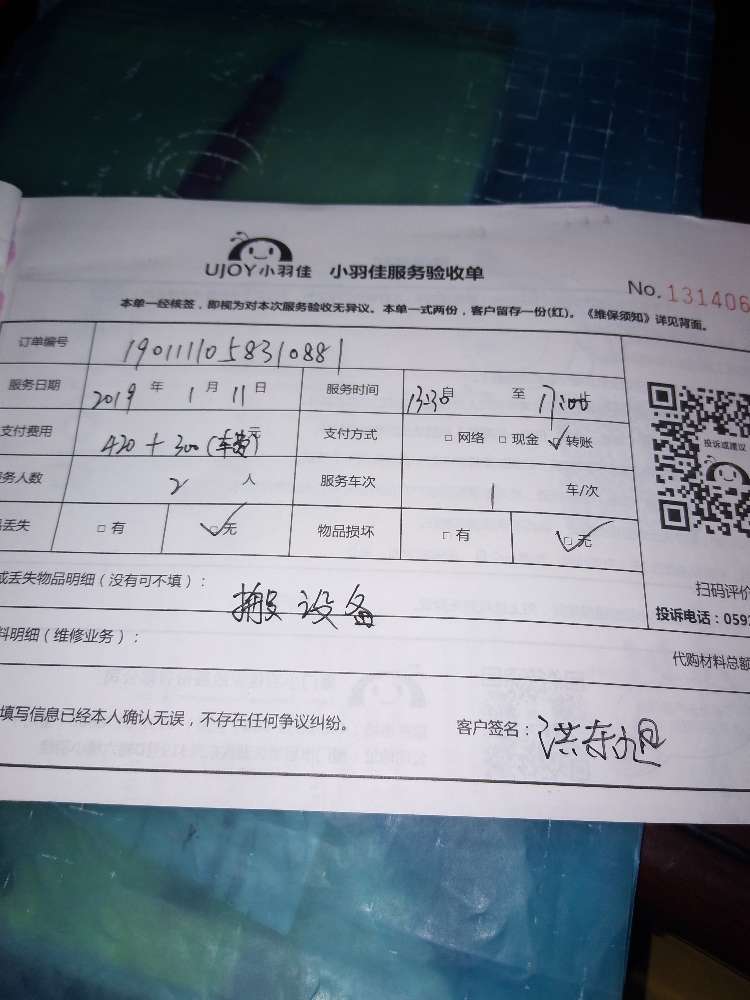 UJOY小羽佳 小羽佳服务验收单
No. 131406
本单一经核签，即视为对本次服务验收无异议。本单一式两份，客户留存一份(红)。《维保须知》详见背面。
订单编号 1901111058310881
服务日期 2019 年 1 月 11 日 服务时间 13:30 自 至 17:00 止
支付费用 420 + 300 (车费) 元 支付方式 □ 网络 □ 现金 ☑ 转账
务人数 2 人 服务车次 1 车/次
丢失 □ 有 ☑ 无 物品损坏 □ 有 ☑ 无
投诉或建议
扫码评价
投诉电话：0592
或丢失物品明细（没有可不填）： 搬设备
料明细（维修业务）： 代购材料总额
填写信息已经本人确认无误，不存在任何争议纠纷。 客户签名：洪东旭